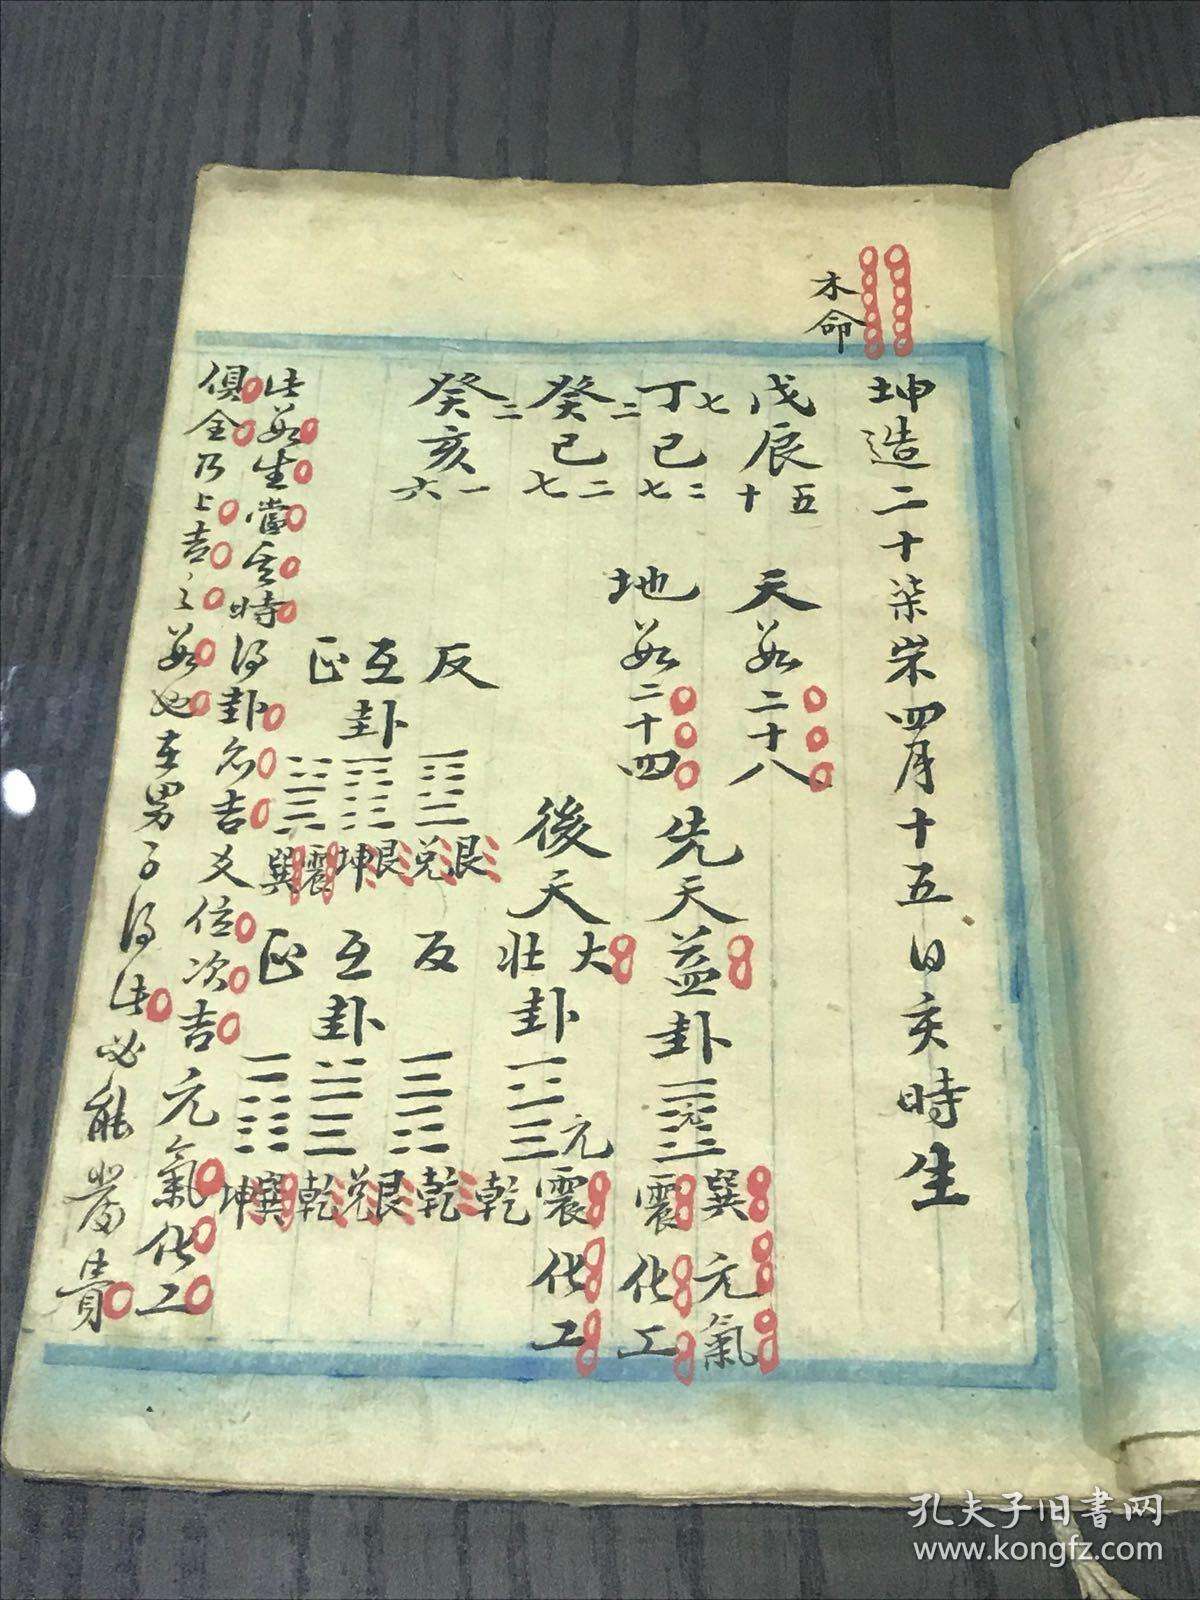 木命
坤造二十柒岁四月十五日亥時生
戊辰
五十
丁七巳
二七
癸二巳
二七
癸二亥
一六
天数二十八
地数二十四
先天益卦 元
巽元氣
震化工
後天大壯卦 元
震化工
乾
反
互卦
正
艮兌
艮坤
震巽
反
互卦
正
乾艮
兌乾
巽坤
此数生當其時得卦名吉爻位次吉元氣化工
俱全乃上吉之数也在男子得此必能發貴
孔夫子旧书网
www.kongfz.com